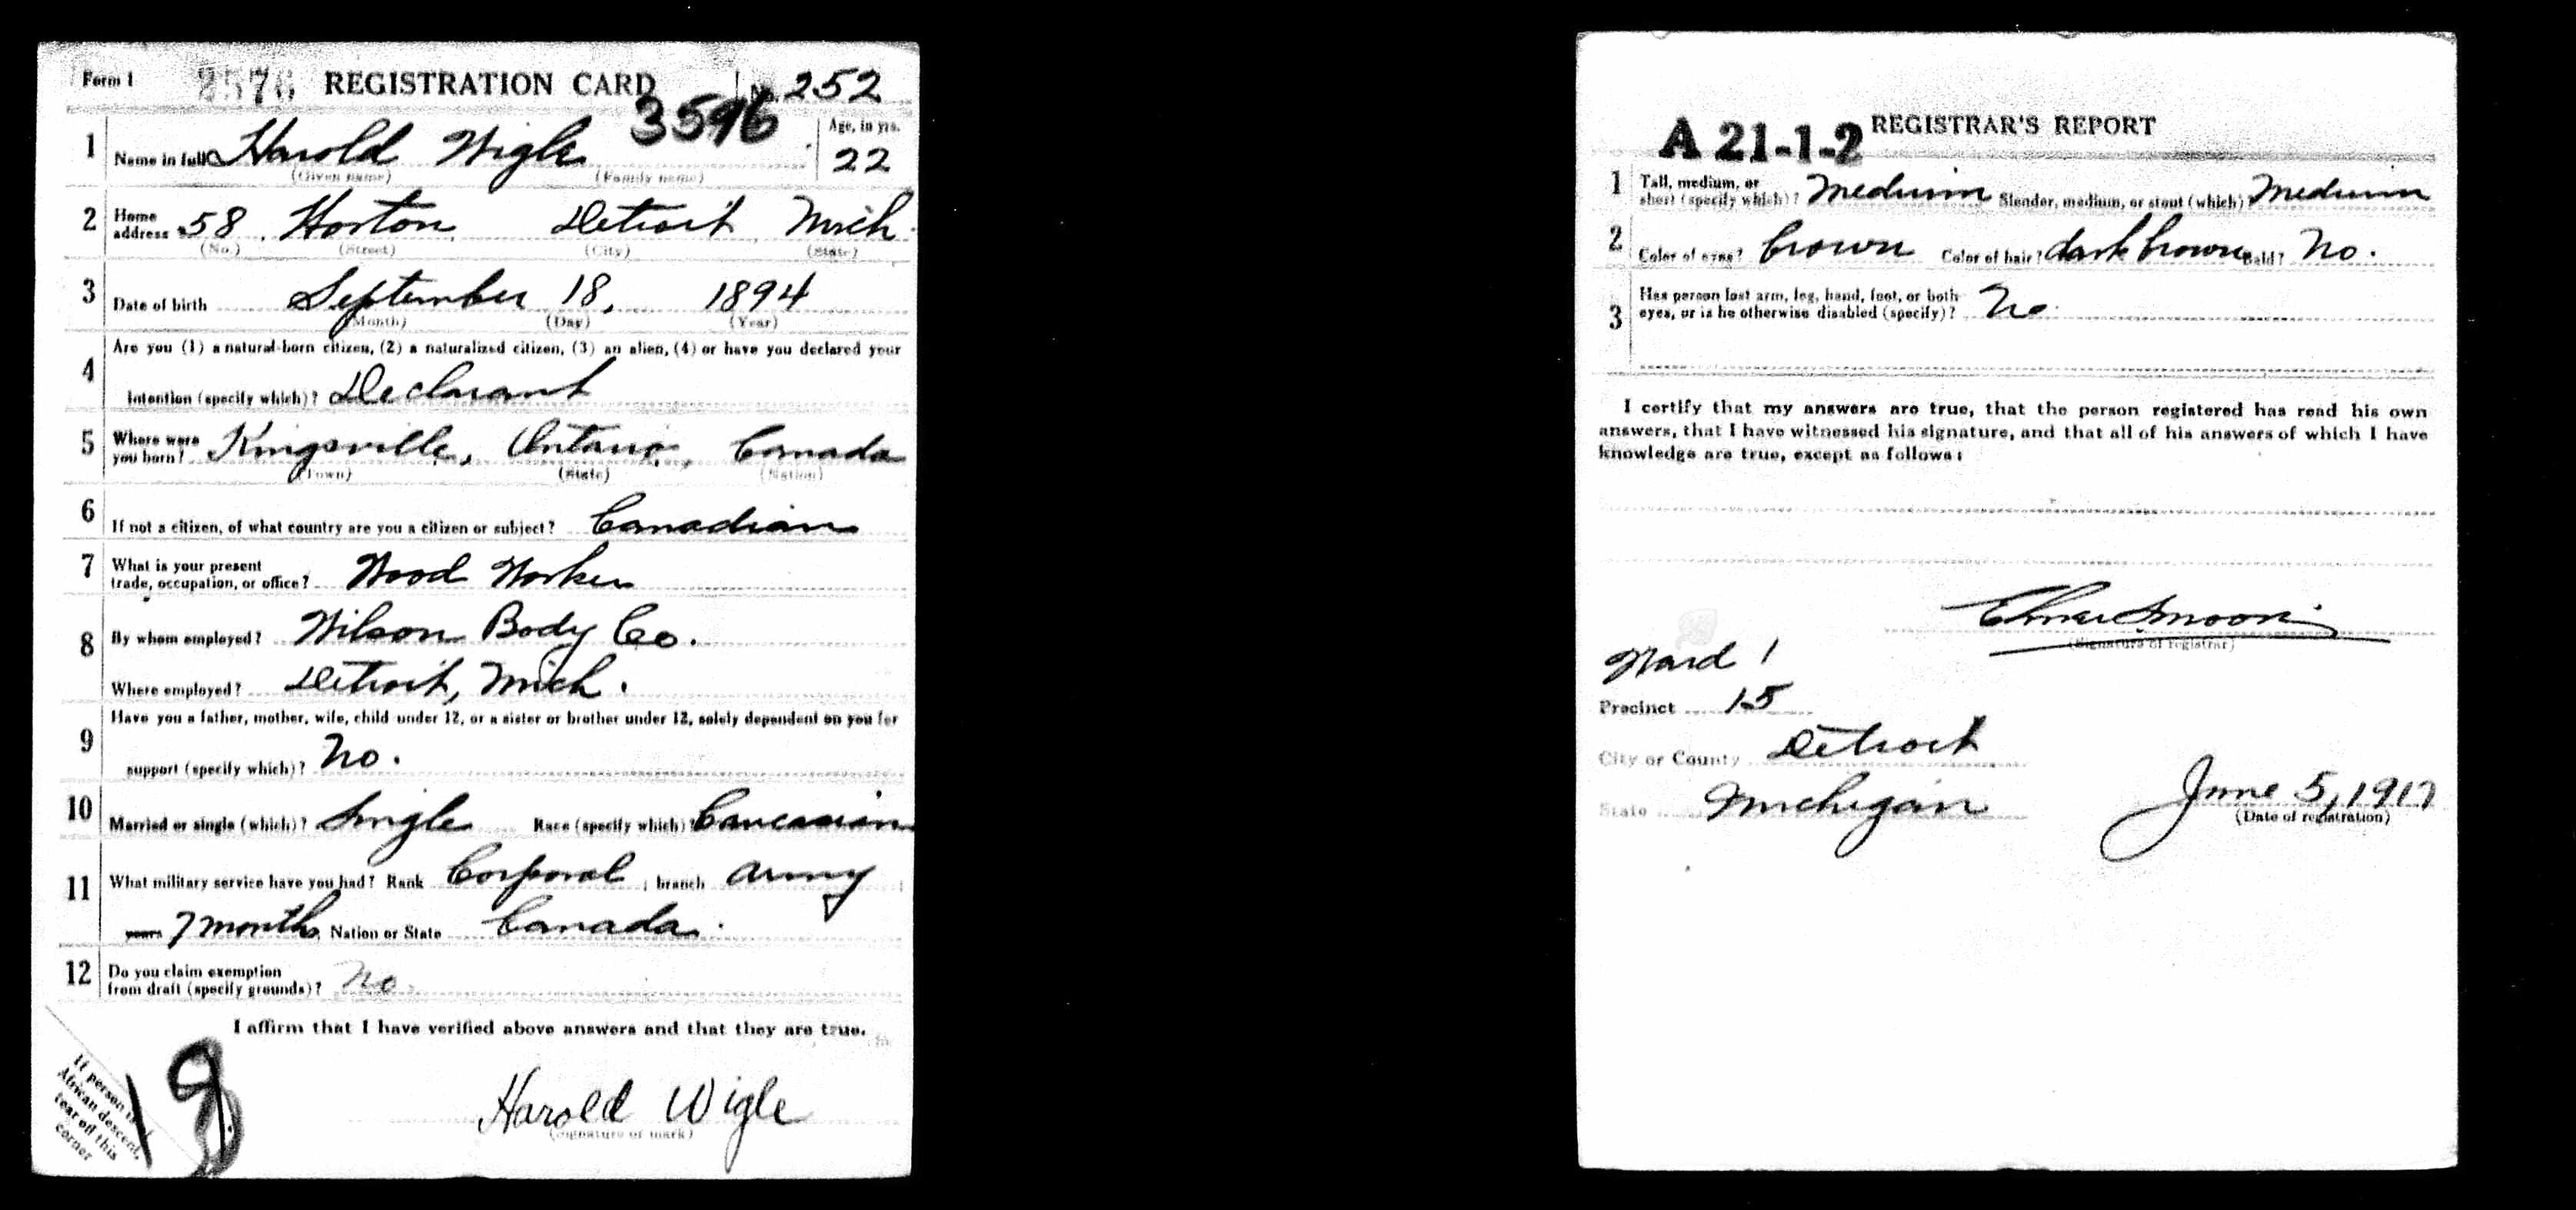 Form 1 2576 REGISTRATION CARD No. 252
3596
1 Name in full Harold Wigle Age, in yrs.
(Given name) (Family name) 22
2 Home address 58 Horton Detroit Mich.
(No.) (Street) (City) (State)
3 Date of birth September 18, 1894
(Month) (Day) (Year)
Are you (1) a natural-born citizen, (2) a naturalized citizen, (3) an alien, (4) or have you declared your
4 intention (specify which)? Declarant
5 Where were you born? Kingsville, Ontario, Canada
(Town) (State) (Nation)
6 If not a citizen, of what country are you a citizen or subject? Canadian
7 What is your present
trade, occupation, or office? Wood Worker
8 By whom employed? Wilson Body Co.
Where employed? Detroit, Mich.
Have you a father, mother, wife, child under 12, or a sister or brother under 12, solely dependent on you for
9 support (specify which)? No.
10 Married or single (which)? Single Race (specify which)? Caucasian
11 What military service have you had? Rank Corporal ; branch Army ;
years 7 months; Nation or State Canada.
12 Do you claim exemption
from draft (specify grounds)? No.
I affirm that I have verified above answers and that they are true.
If person is of
African descent,
tear off this
corner
Harold Wigle
(Signature or mark)
A 21-1-2 REGISTRAR'S REPORT
1 Tall, medium, or
short (specify which)? Medium Slender, medium, or stout (which)? Medium
2 Color of eyes? Brown Color of hair? dark brown Bald? No.
Has person lost arm, leg, hand, foot, or both
3 eyes, or is he otherwise disabled (specify)? No
I certify that my answers are true, that the person registered has read his own
answers, that I have witnessed his signature, and that all of his answers of which I have
knowledge are true, except as follows:
(Signature of registrar)
Ward 1
Precinct 15
City or County Detroit
State Michigan June 5, 1917
(Date of registration)